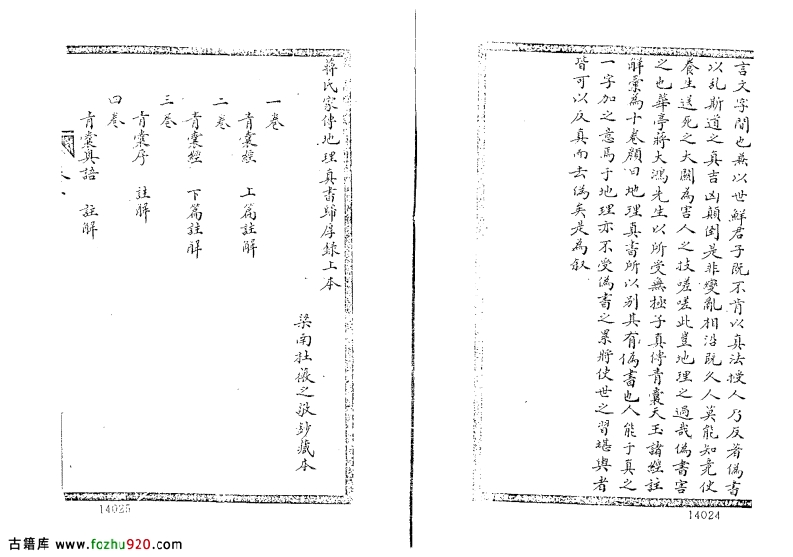 言文字間也無以世鮮君子既不肯以真法授人乃反著偽書
以乱斯道之真吉凶顛倒是非變亂相沿既久人莫能知竟使
養生送死之大關為害人之技嗟嗟此豈地理之過哉偽書害
之也華亭蔣大鴻先生以所受無極子真傳青囊天玉諸經註
解彙為十卷顏曰地理真書所以別其有偽書也人能于真之
一字加之意焉于地理亦不受偽書之累將使世之習堪輿者
皆可以反真而去偽矣是為叙
14024
蔣氏家傳地理真書歸厚錄上本
梁南杜薇之敬鈔藏本
一卷
青囊經 上篇註解
二卷
青囊經 下篇註解
三卷
青囊序 註解
四卷
青囊奥語 註解
14025
古籍库 www.fozhu920.com